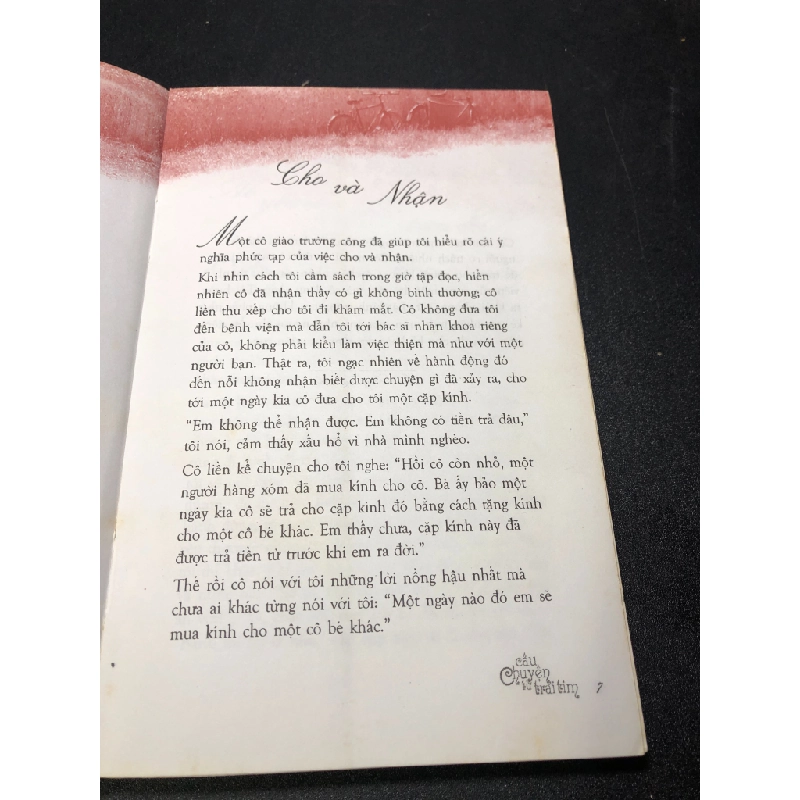 Cho và Nhận
Một cô giáo trường công đã giúp tôi hiểu rõ cái ý
nghĩa phức tạp của việc cho và nhận.
Khi nhìn cách tôi cầm sách trong giờ tập đọc, hiển
nhiên cô đã nhận thấy có gì không bình thường; cô
liền thu xếp cho tôi đi khám mắt. Cô không đưa tôi
đến bệnh viện mà dẫn tôi tới bác sĩ nhãn khoa riêng
của cô, không phải kiểu làm việc thiện mà như với một
người bạn. Thật ra, tôi ngạc nhiên về hành động đó
đến nỗi không nhận biết được chuyện gì đã xảy ra, cho
tới một ngày kia cô đưa cho tôi một cặp kính.
“Em không thể nhận được. Em không có tiền trả đâu,”
tôi nói, cảm thấy xấu hổ vì nhà mình nghèo.
Cô liền kể chuyện cho tôi nghe: “Hồi cô còn nhỏ, một
người hàng xóm đã mua kính cho cô. Bà ấy bảo một
ngày kia cô sẽ trả cho cặp kính đó bằng cách tặng kính
cho một cô bé khác. Em thấy chưa, cặp kính này đã
được trả tiền từ trước khi em ra đời.”
Thế rồi cô nói với tôi những lời nồng hậu nhất mà
chưa ai khác từng nói với tôi: “Một ngày nào đó em sẽ
mua kính cho một cô bé khác.”
câu
Chuyện
trái tim 7